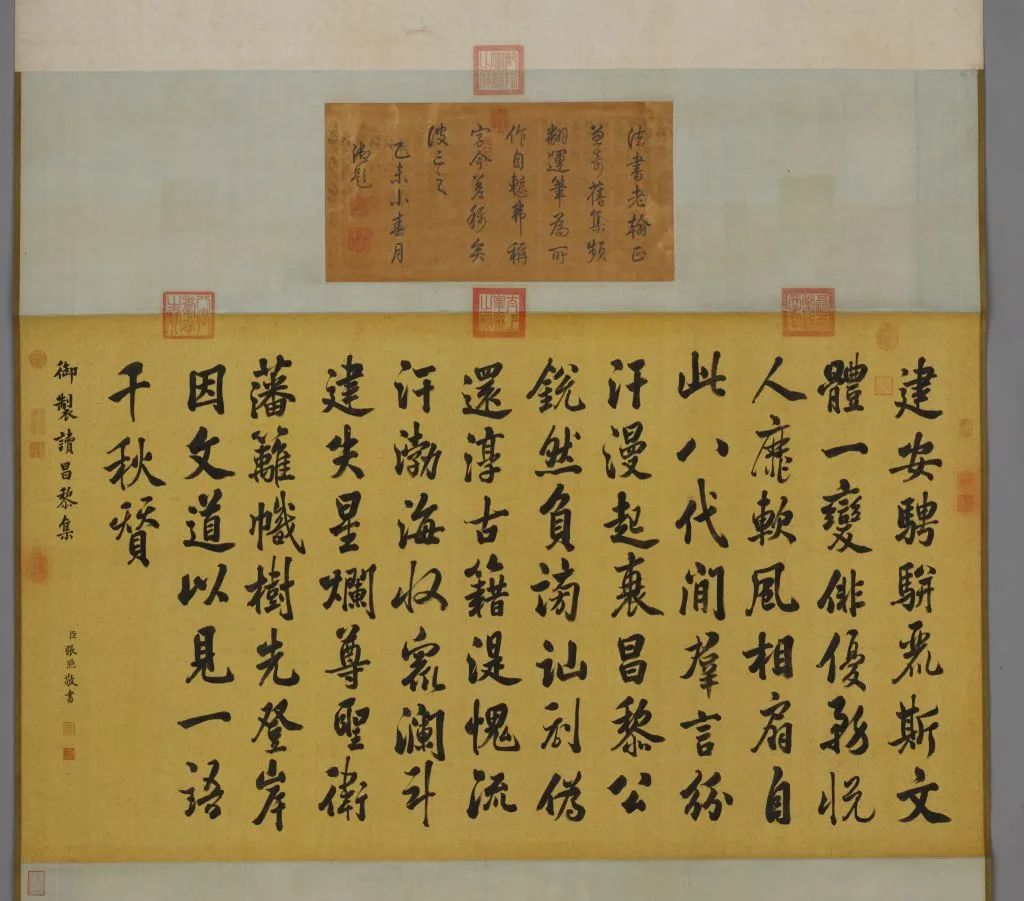 法書老翰正
兼奇舊集頻
翻運筆為所
作自慙弗稱
字今差稱矣
彼亡之
乙未小春月
御題
建安騁駢麗斯文
體一變俳優務悅
人靡軟風相扇自
此八代間羣言紛
汗漫起衰昌黎公
銳然負謗訕剗偽
還淳古籍湜愧流
汗渤海收衆瀾斗
建失星爛尊聖衛
藩籬幟樹先登岸
因文道以見一語
千秋贊
御製讀昌黎集
臣張照敬書